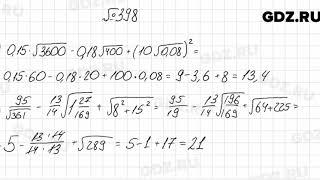 GDZ.RU
№398
0,15·√3600 − 0,18√400 + (10√0,08)² =
= 0,15·60 − 0,18·20 + 100·0,08 = 9−3,6+8 = 13,4
95/√361 − 13/14 √(1 27/169) + √(8²+15²) = 95/19 − 13/14 √(196/169) + √(64+225) =
= 5 − (13·14)/(14·13) + √289 = 5−1+17 = 21
GDZ.RU